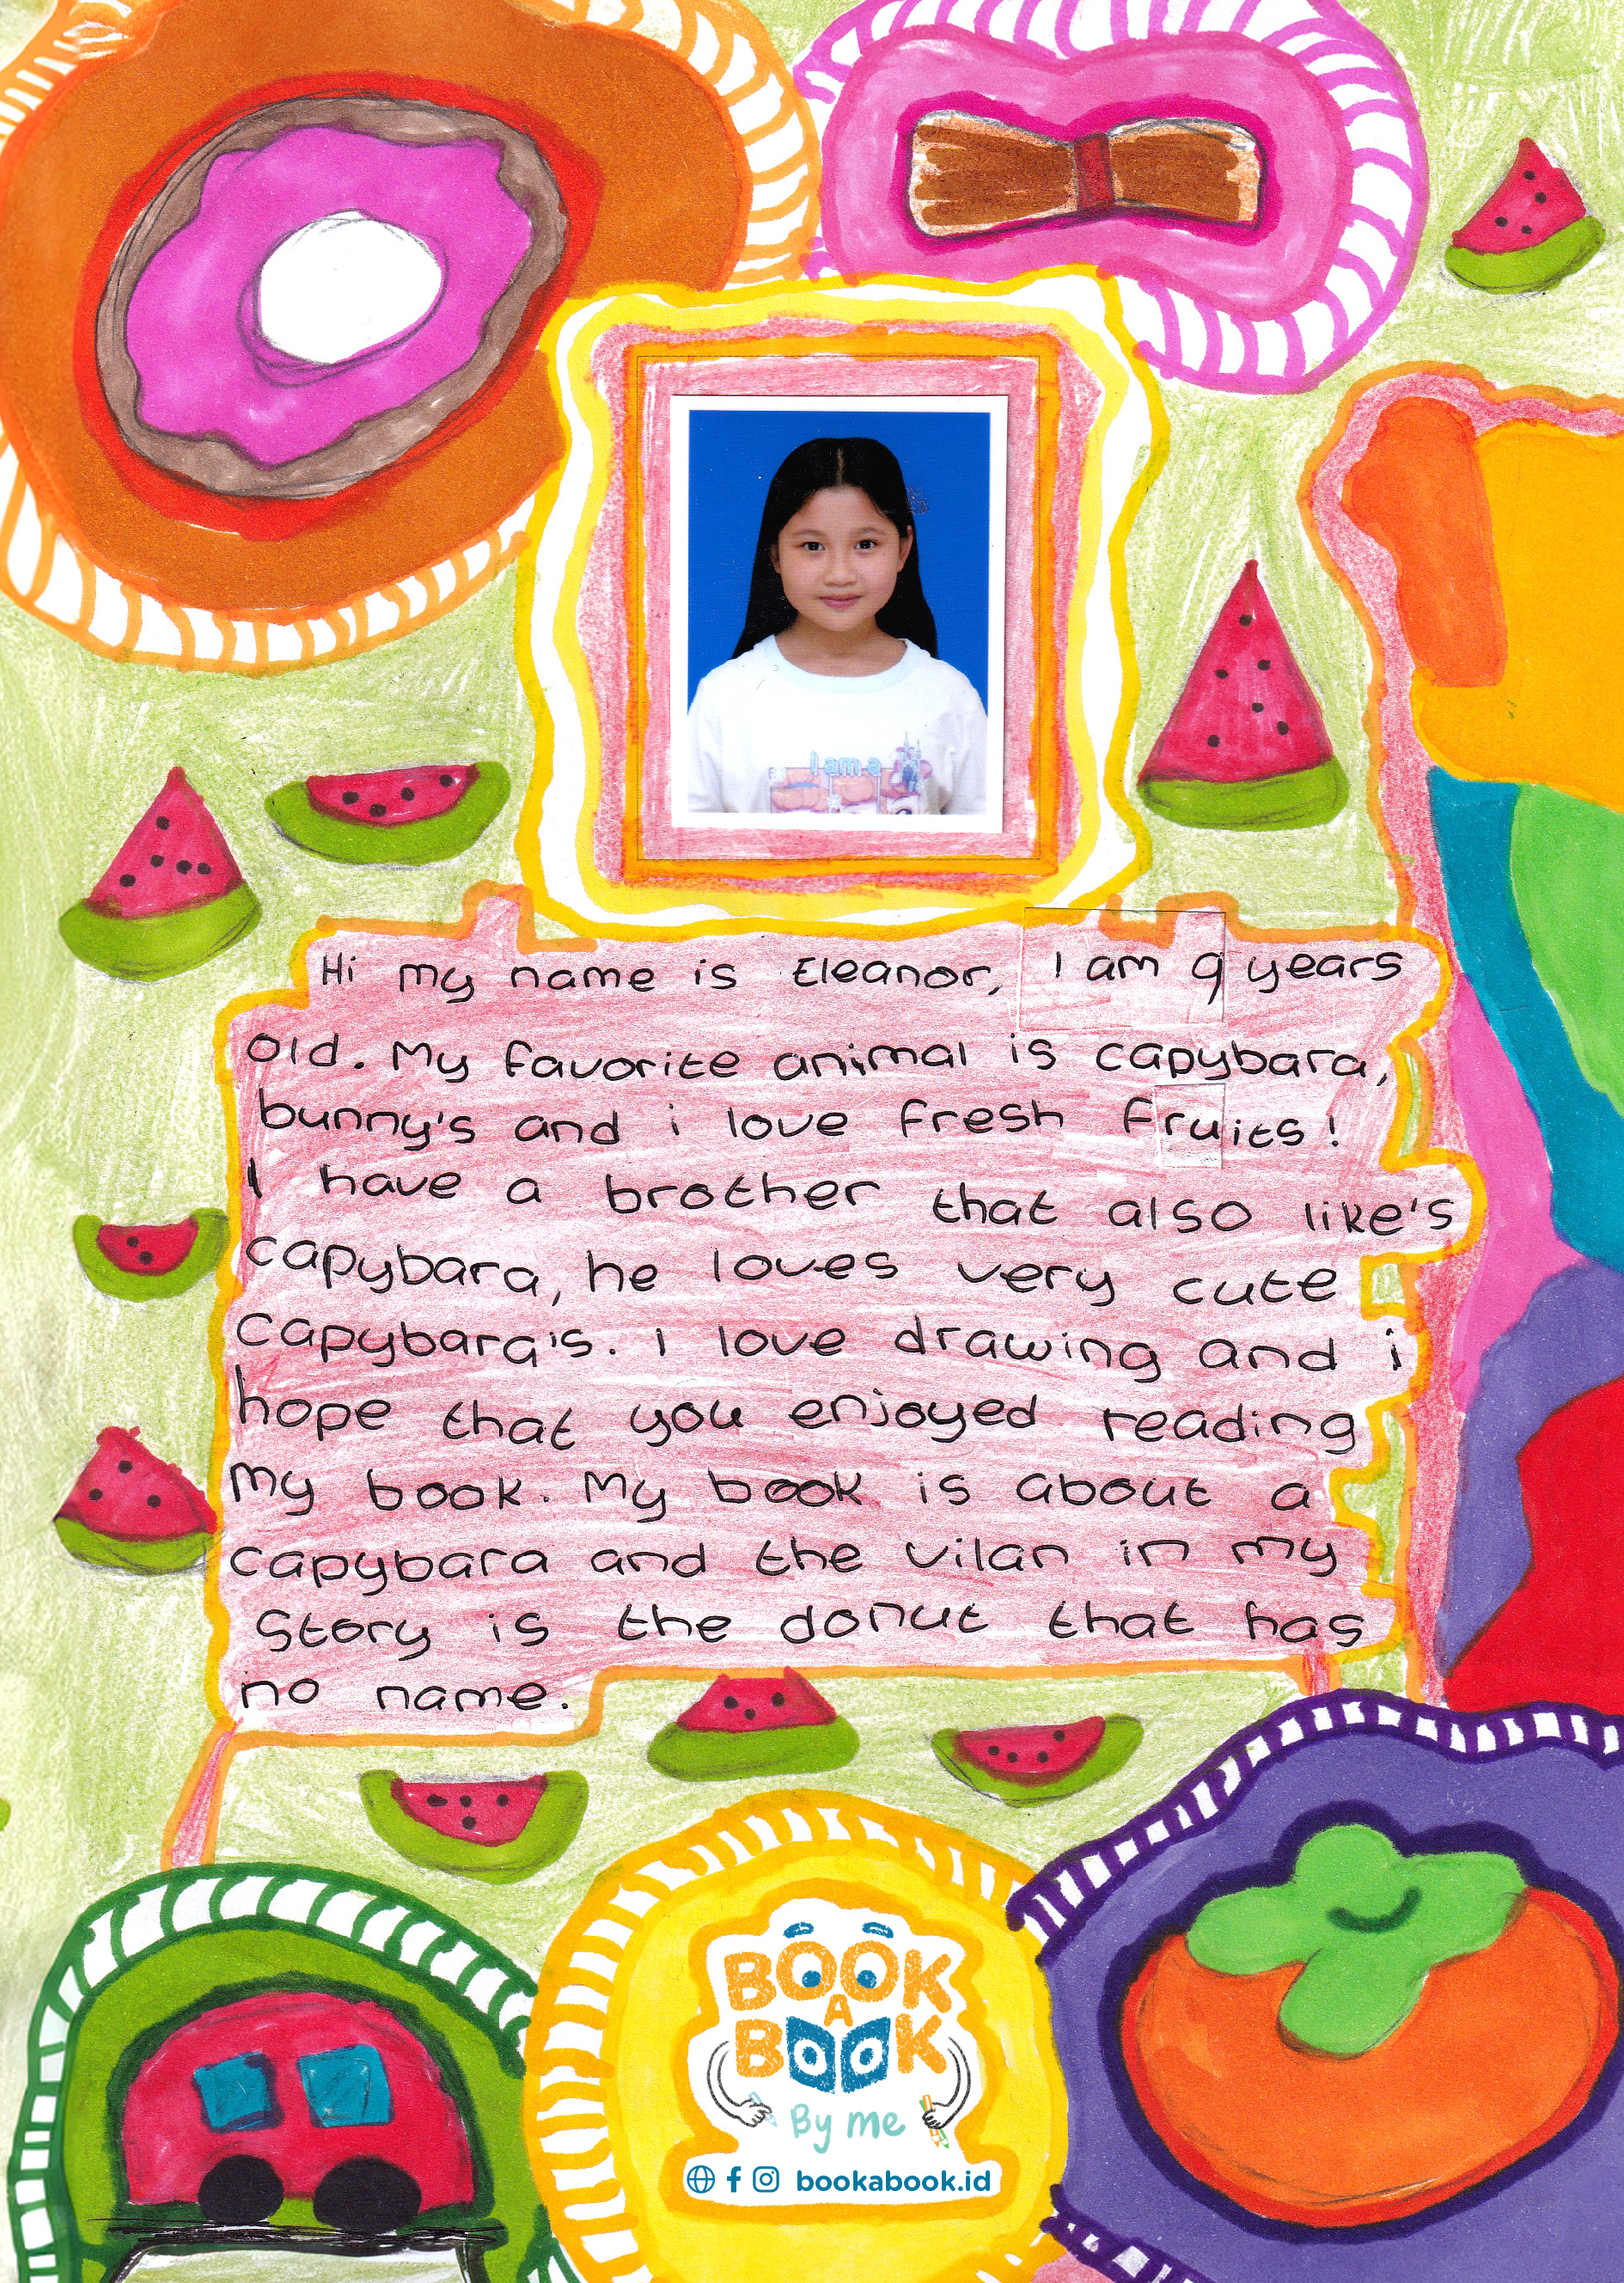 I am a
Hi my name is Eleanor, I am 9 years
old. My favorite animal is capybara,
bunny's and i love fresh fruits!
I have a brother that also like's
capybara, he loves very cute
capybara's. I love drawing and i
hope that you enjoyed reading
my book. My book is about a
capybara and the vilan in my
story is the donut that has
no name.
BOOK
A
BOOK
By me
bookabook.id